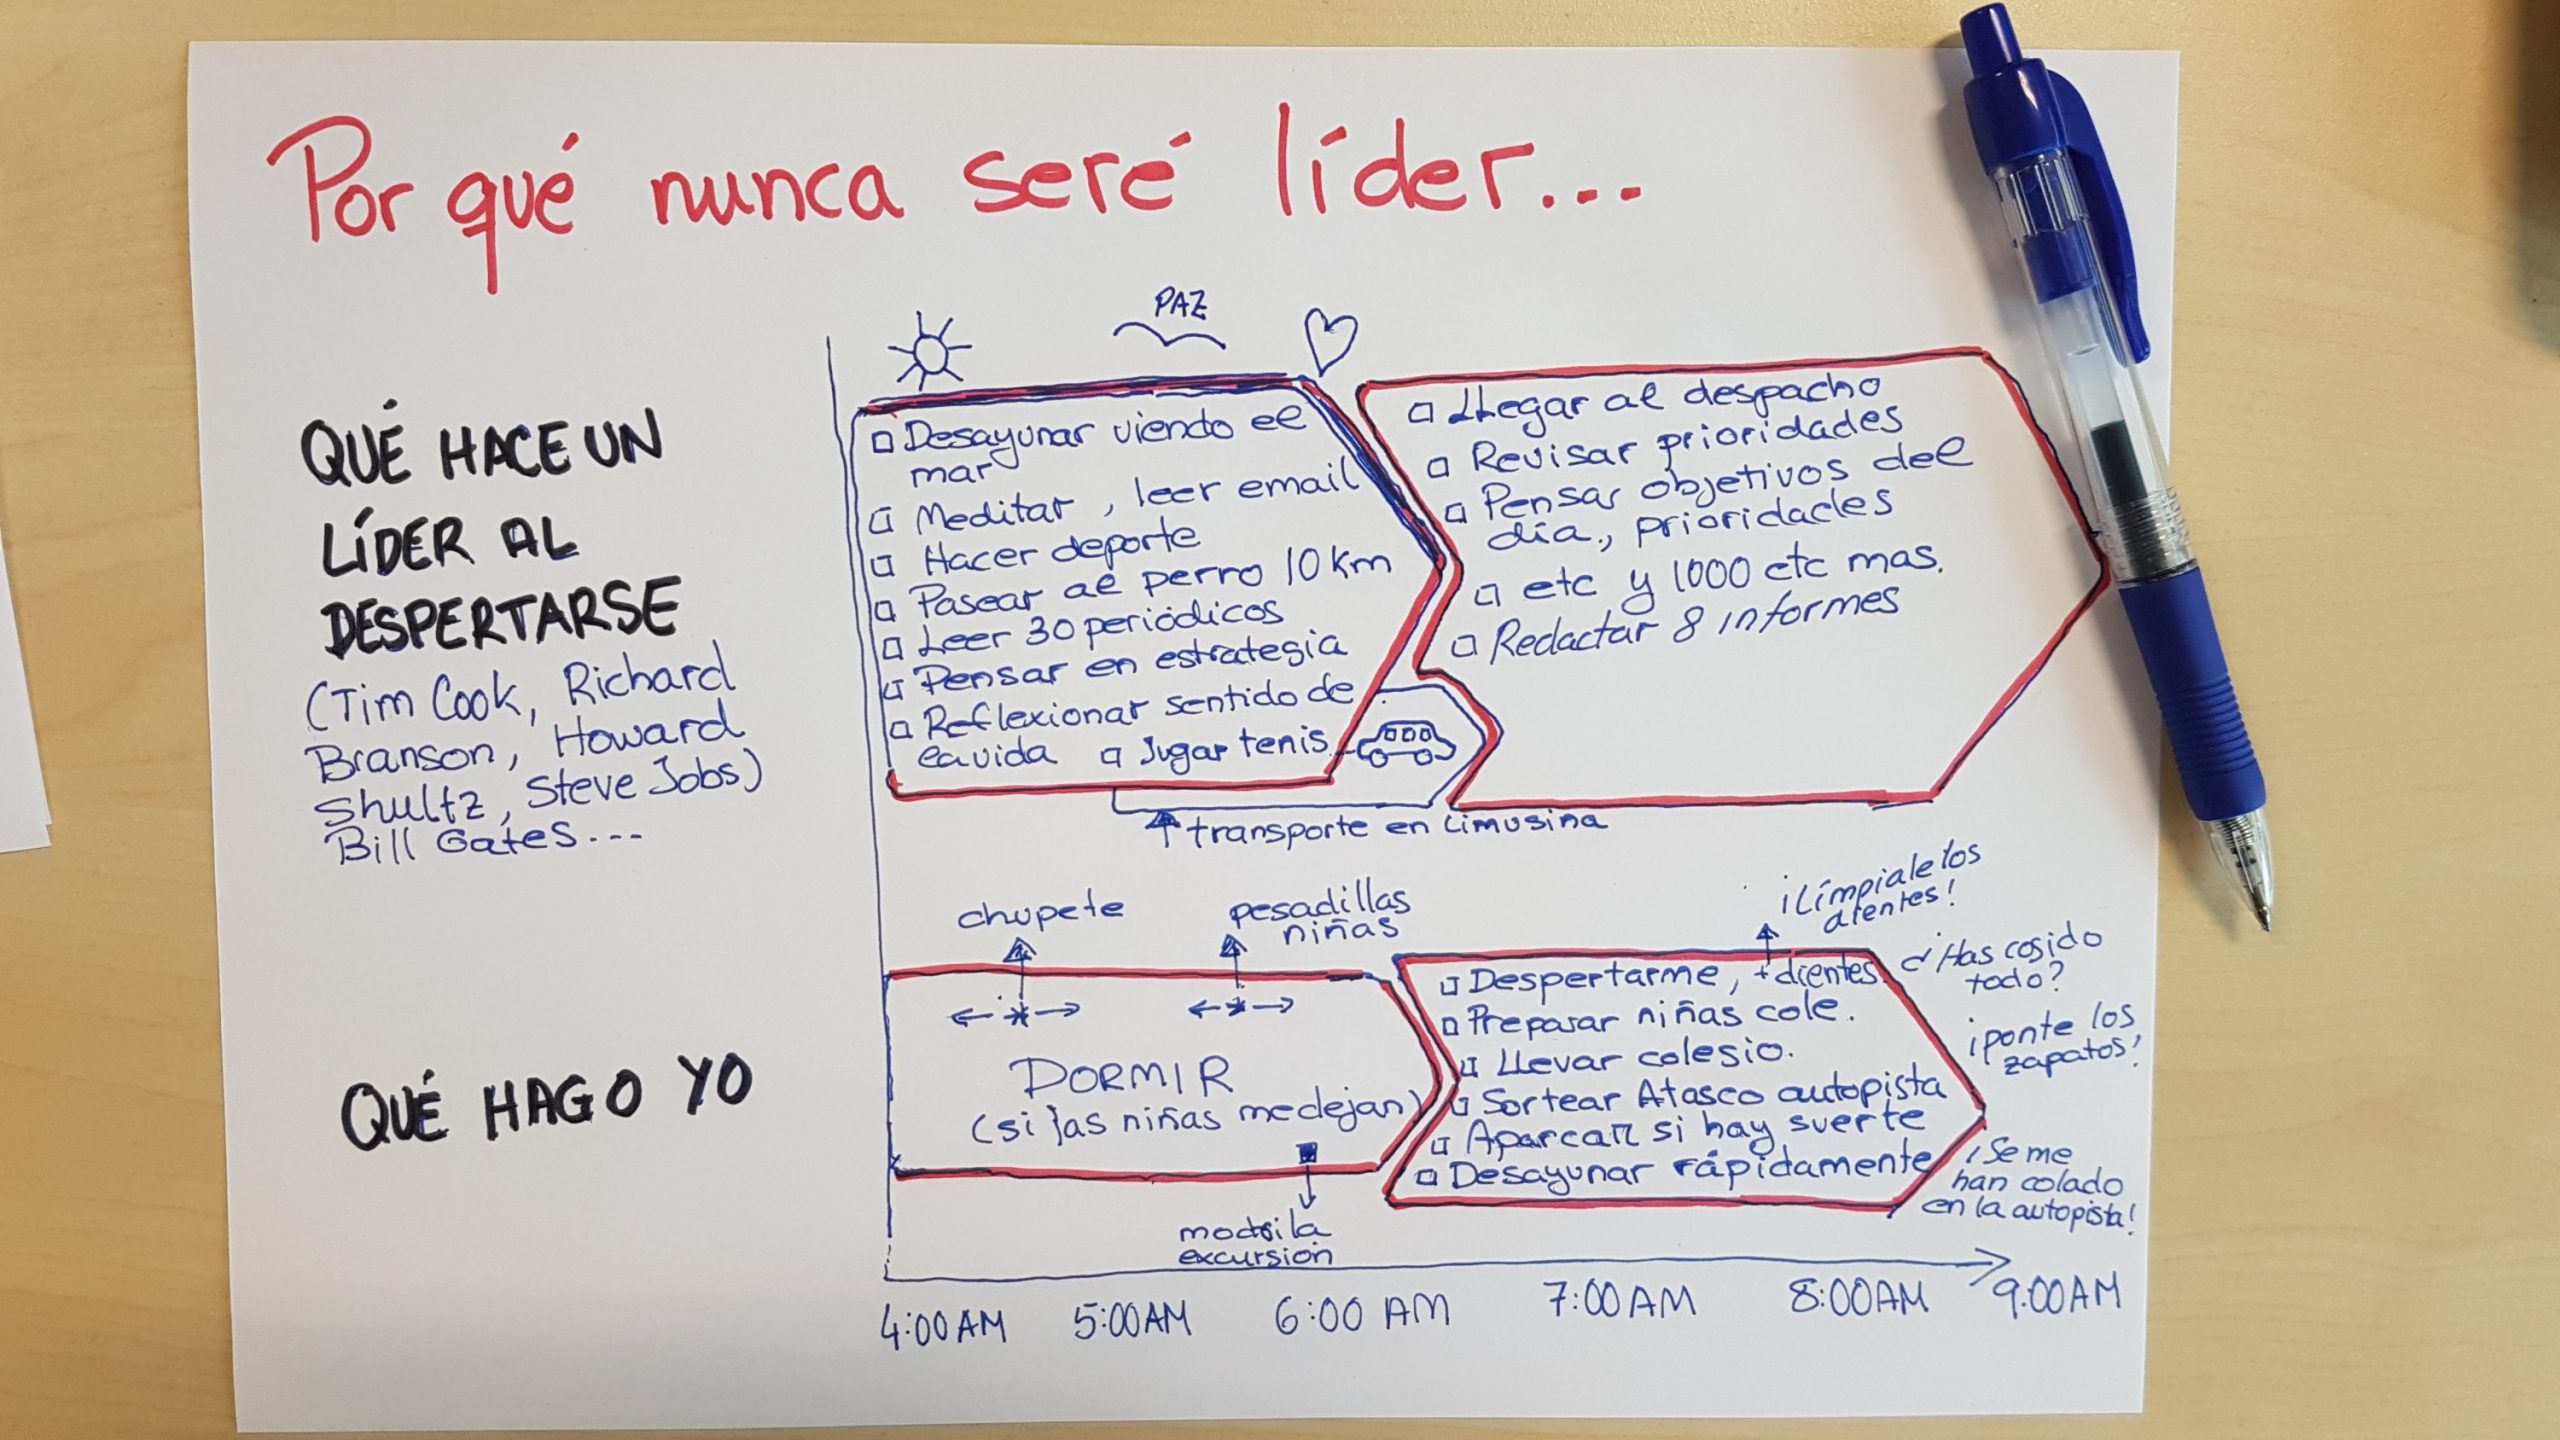 Por qué nunca seré líder...
PAZ
QUÉ HACE UN
LÍDER AL
DESPERTARSE
(Tim Cook, Richard
Branson, Howard
Shultz, Steve Jobs)
Bill Gates...
Desayunar viendo el
mar
Meditar, leer email
Hacer deporte
Pasear al perro 10 km
Leer 30 periódicos
Pensar en estrategia
Reflexionar sentido de
la vida Jugar tenis
Llegar al despacho
Revisar prioridades
Pensar objetivos del
día, prioridades
etc y 1000 etc mas.
Redactar 8 informes
transporte en limusina
QUÉ HAGO YO
chupete
pesadillas
niñas
DORMIR
(si las niñas me dejan)
excursión
Despertarme, + dientes
Preparar niñas cole.
Llevar colegio.
Sortear Atasco autopista
Aparcar si hay suerte
Desayunar rápidamente
¡Límpiale los
dientes!
¿Has cosido
todo?
¡ponte los
zapatos!
¡Se me
han colado
en la autopista!
4:00 AM 5:00 AM 6:00 AM 7:00 AM 8:00 AM 9:00 AM